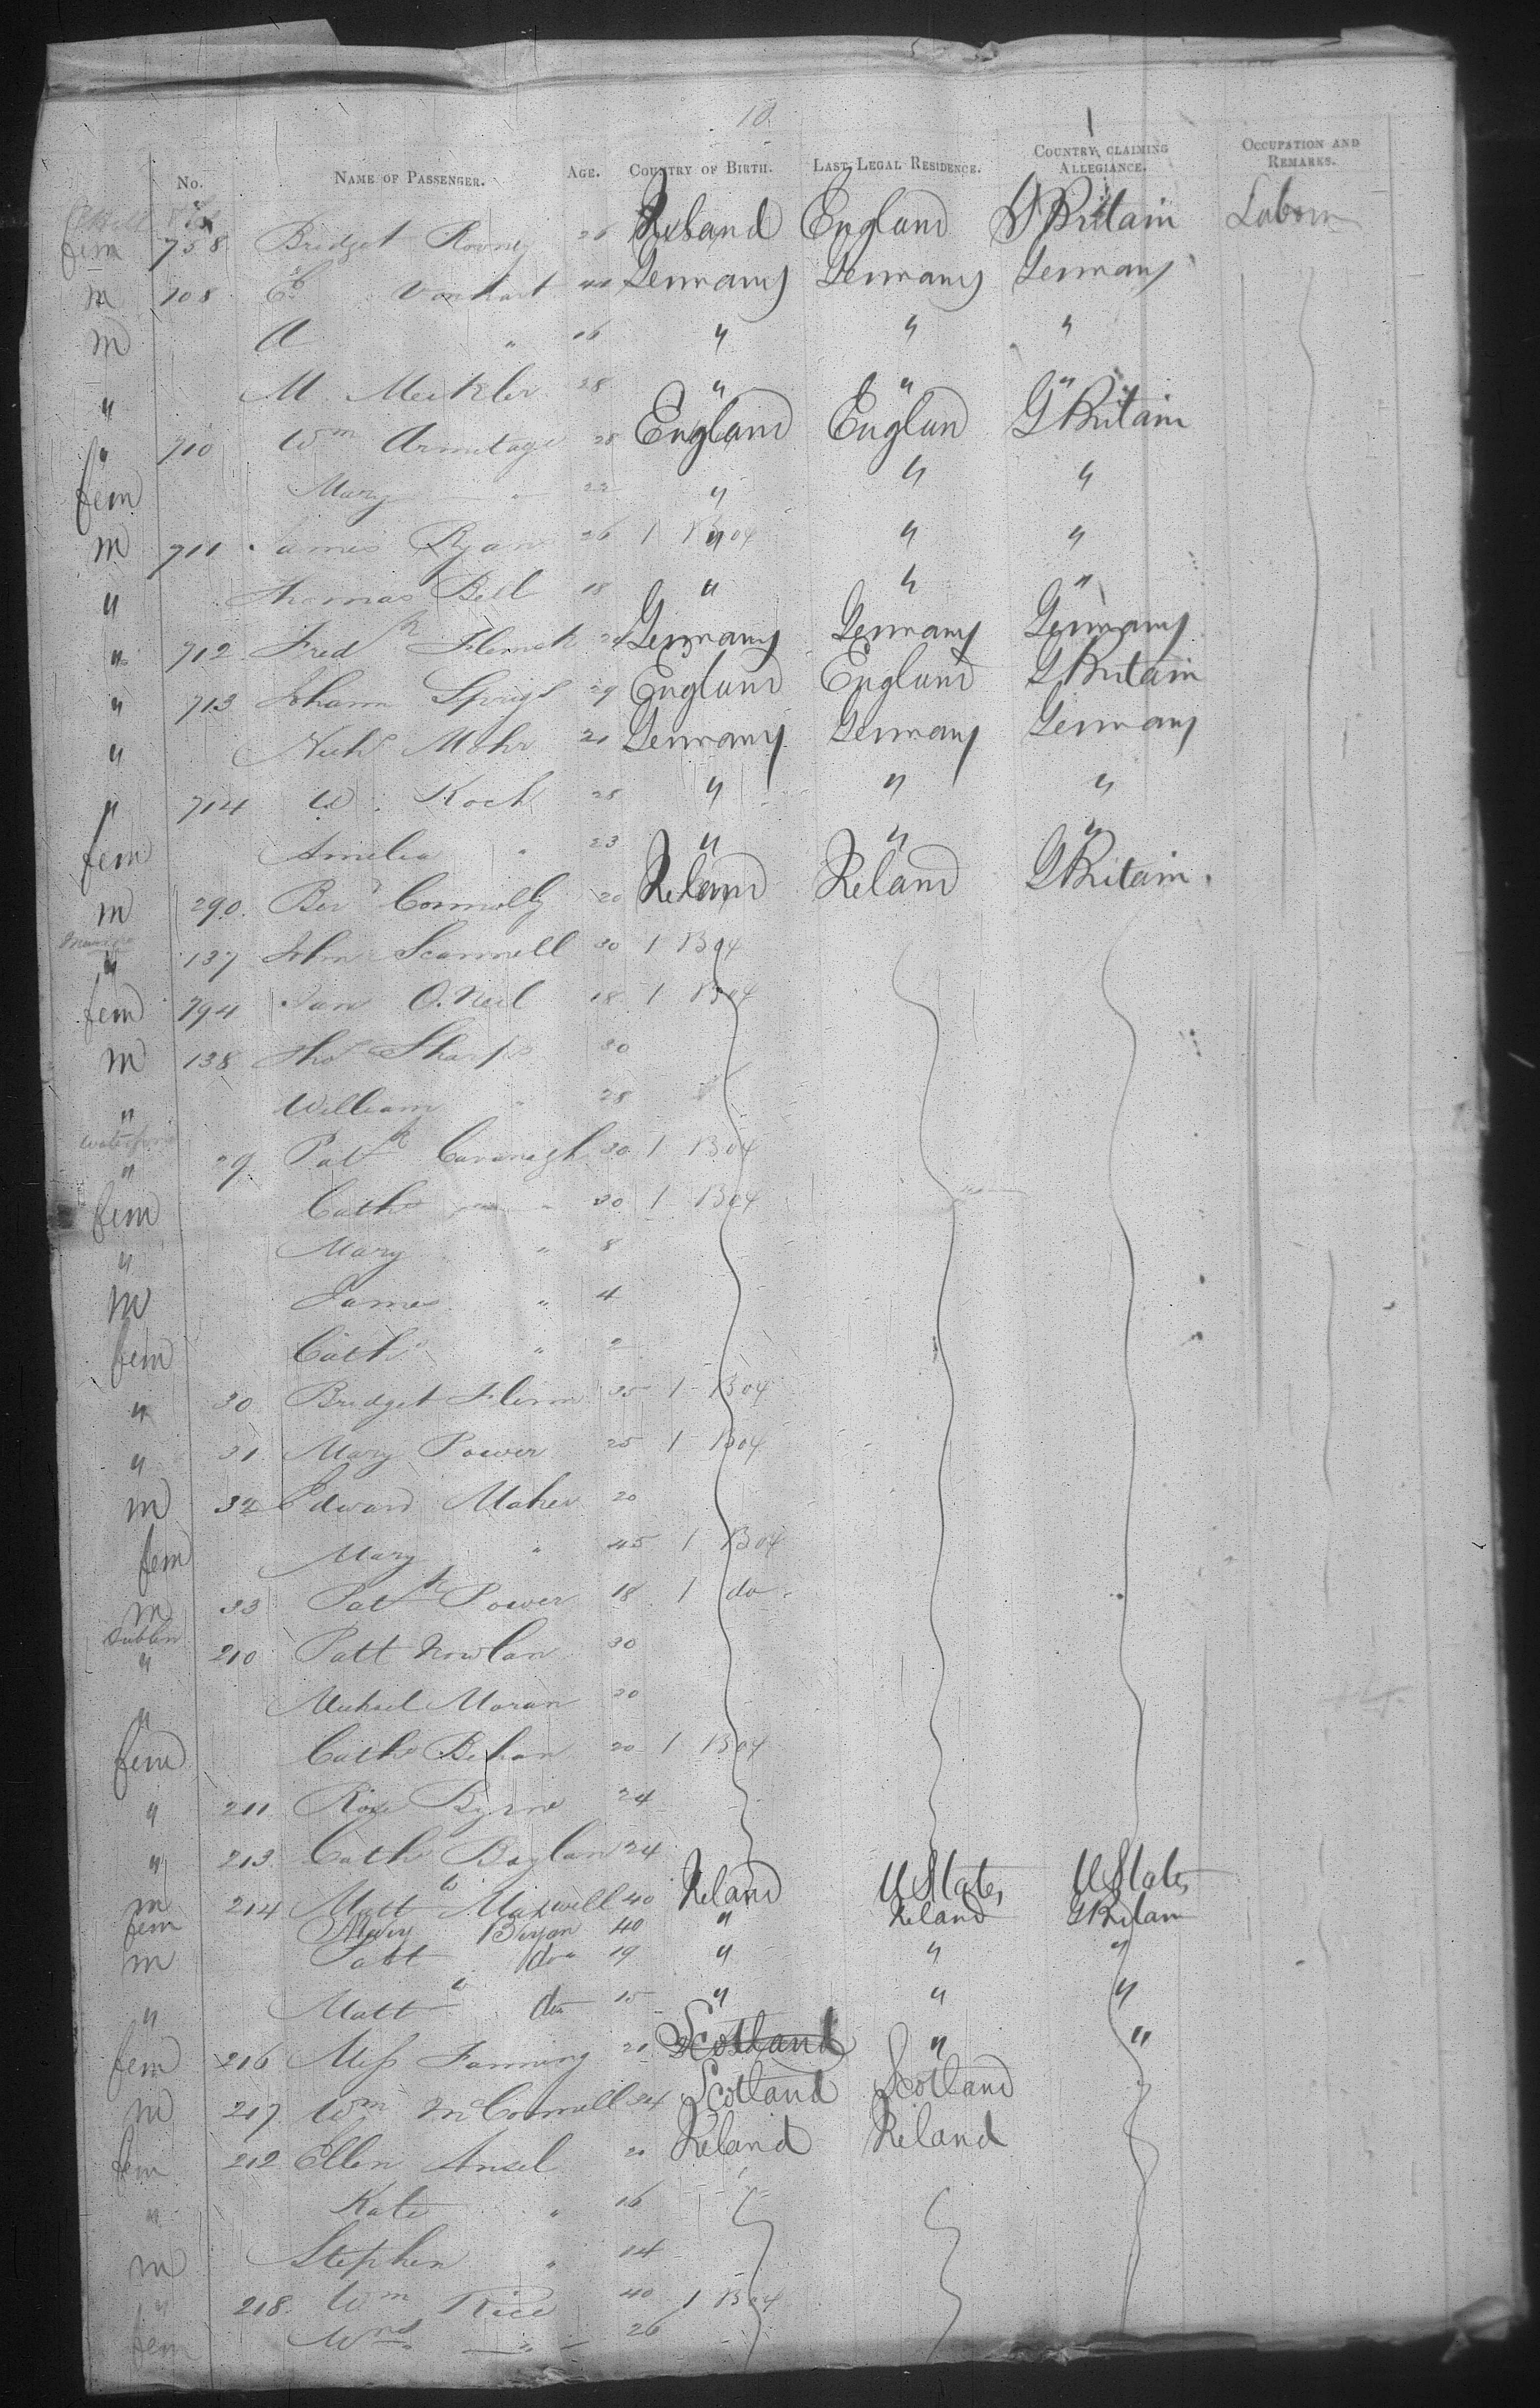 10.
No. NAME OF PASSENGER. AGE. COUNTRY OF BIRTH. LAST LEGAL RESIDENCE. COUNTRY CLAIMING ALLEGIANCE. OCCUPATION AND REMARKS.
fem 758 Bridget 26 Ireland England G Britain Labour
m 708 44 Germany Germany Germany
m A " 16 " " "
" M. Meikler 28 " " "
" 710 Wm Armitage 28 England Englan G Britain
fem Mary " 22 " " "
m 711 James Ryan 26 1 B04 " " "
" Thomas Bell 18 " " "
" 712 Fredk Germany Germany Germany
" 713 Johann 29 England England G Britain
" Mohr 21 Germany Germany Germany
" 714 W. Koch 28 " " "
fem Amelia " 23 " " "
m 290. Connolly 20 Ireland Ireland G Britain.
" 137 John Scannell 30 1 B04
fem 794 Jane O.Neil 18 1 B04
m 138 Thos Sharp 30
" William " 28
Waterford
" 29 Patk Cavanagh 30 1 B04
fem Cath " 30 1 B04
" Mary " 8
m James " 4
fem Cath " 2
" 30 Bridget Flinn 35 1 B04
" 31 Mary Power 25 1 B04
m 32 Edward Maher 20
fem Mary " 45 1 B04
m 33 Patk Power 18 1 do
Dublin
" 210 Patt Nowlan 30
" Michael Moran 20
fem Cath Behan 20 1 B04
" 211 Rose Byrne 24
" 213 Cath Boylan 24
m 214 Mattw Maxwell 40 Ireland U States U States
fem Mary Bryan 40 " Ireland G Britain
m Patt do 19 " " "
" Mattw do 15 " " "
fem 216 Miss Fanning 21 Scotland " "
m 217 Wm McConnell 34 Scotland Scotland "
fem 212 Ellen Ansel 20 Ireland Ireland
" Kate " 16
m Stephen " 14
" 218. Wm Rice 40 1 B04
fem Mrs " 26